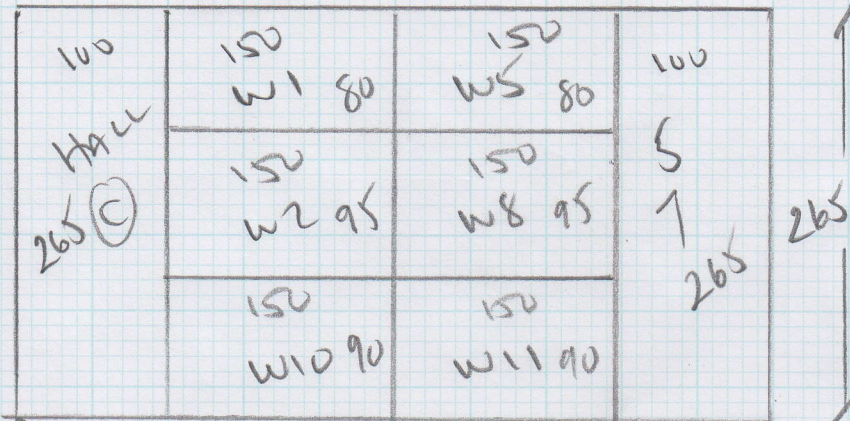 100
HALL
265 C
150
W1 80
150
W5 80
150
W2 95
150
W8 95
150
W10 90
150
W11 90
100
5
1
265
265